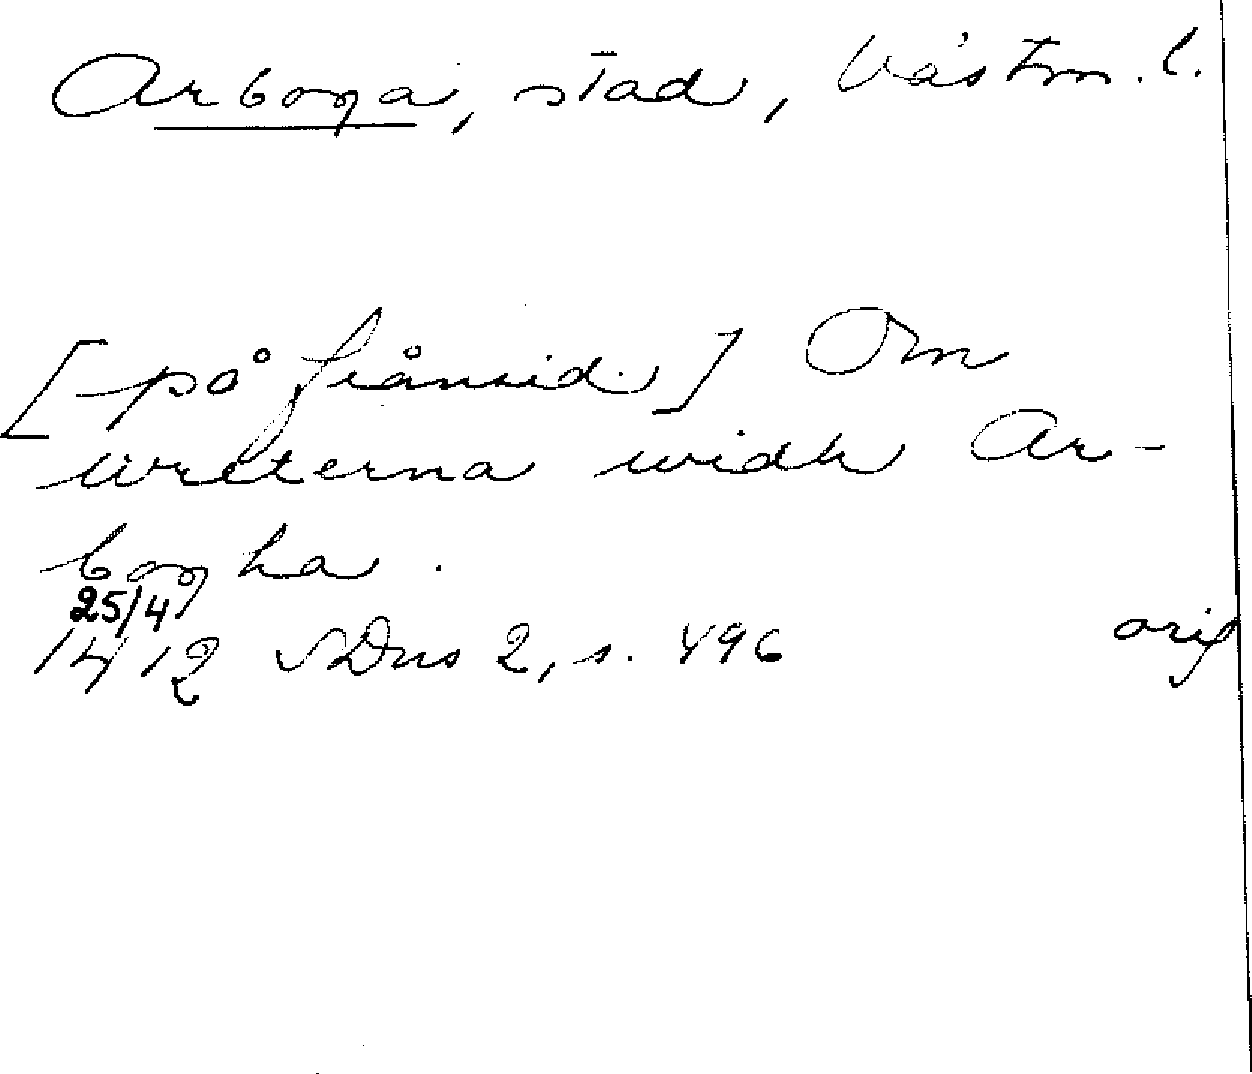 Arboga, stad, Västm. l.
[på frånsid.] Om
wreterna widh Ar-
bogha.
25/4
1412 SDns 2, s. 496 orig